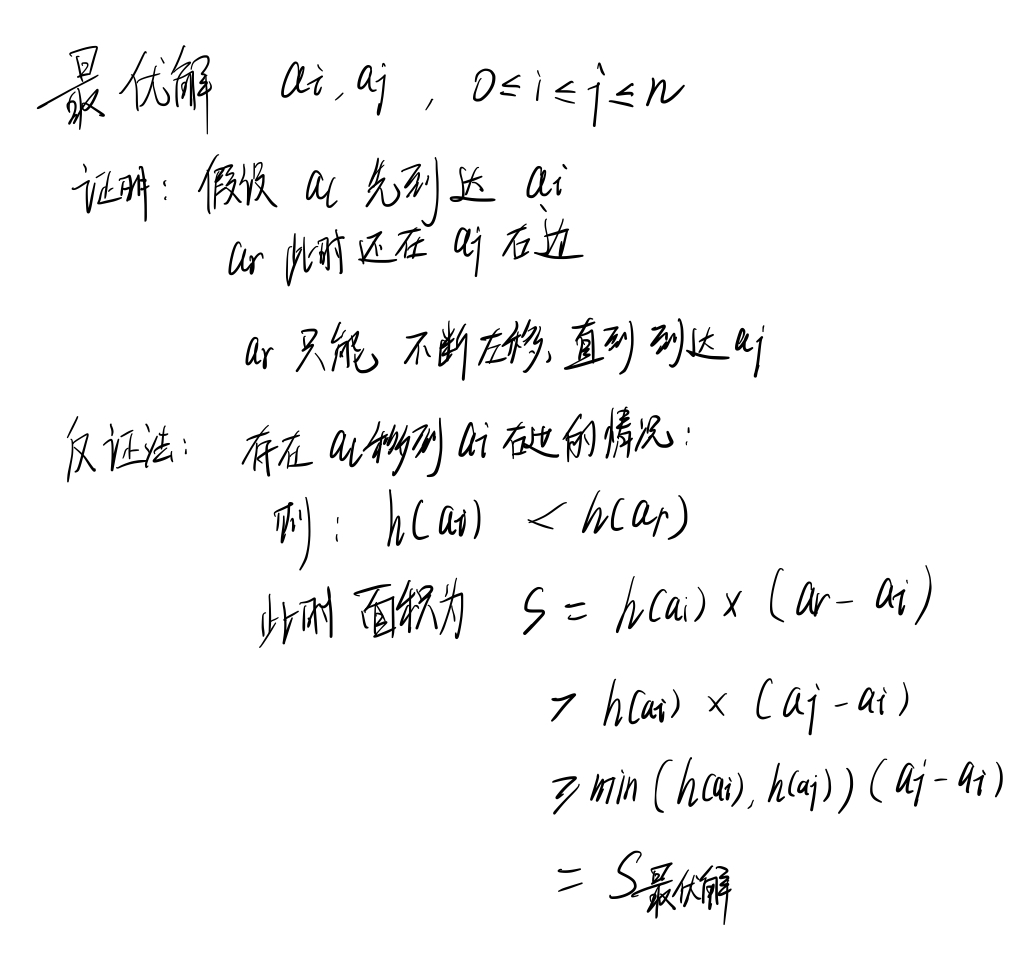 最优解 ai, aj, 0≤i≤j≤n
证明: 假设 al 先到达 ai
ar 此时还在 aj 右边
ar 只能 不断左移, 直到到达 aj
反证法: 存在 al移到 ai 右边的情况:
则: h(ai) < h(ar)
此时面积为 S = h(ai) × (ar - ai)
> h(ai) × (aj - ai)
≥ min (h(ai), h(aj)) (aj - ai)
= S最优解